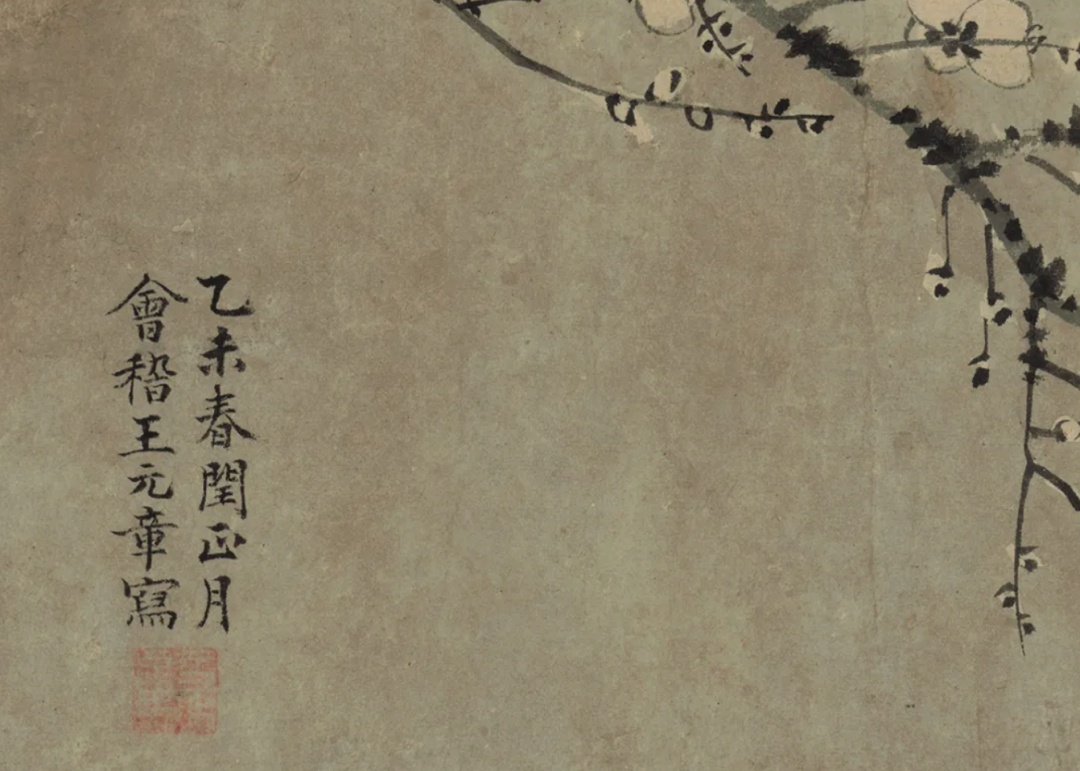 乙未春閏正月
會稽王元章寫